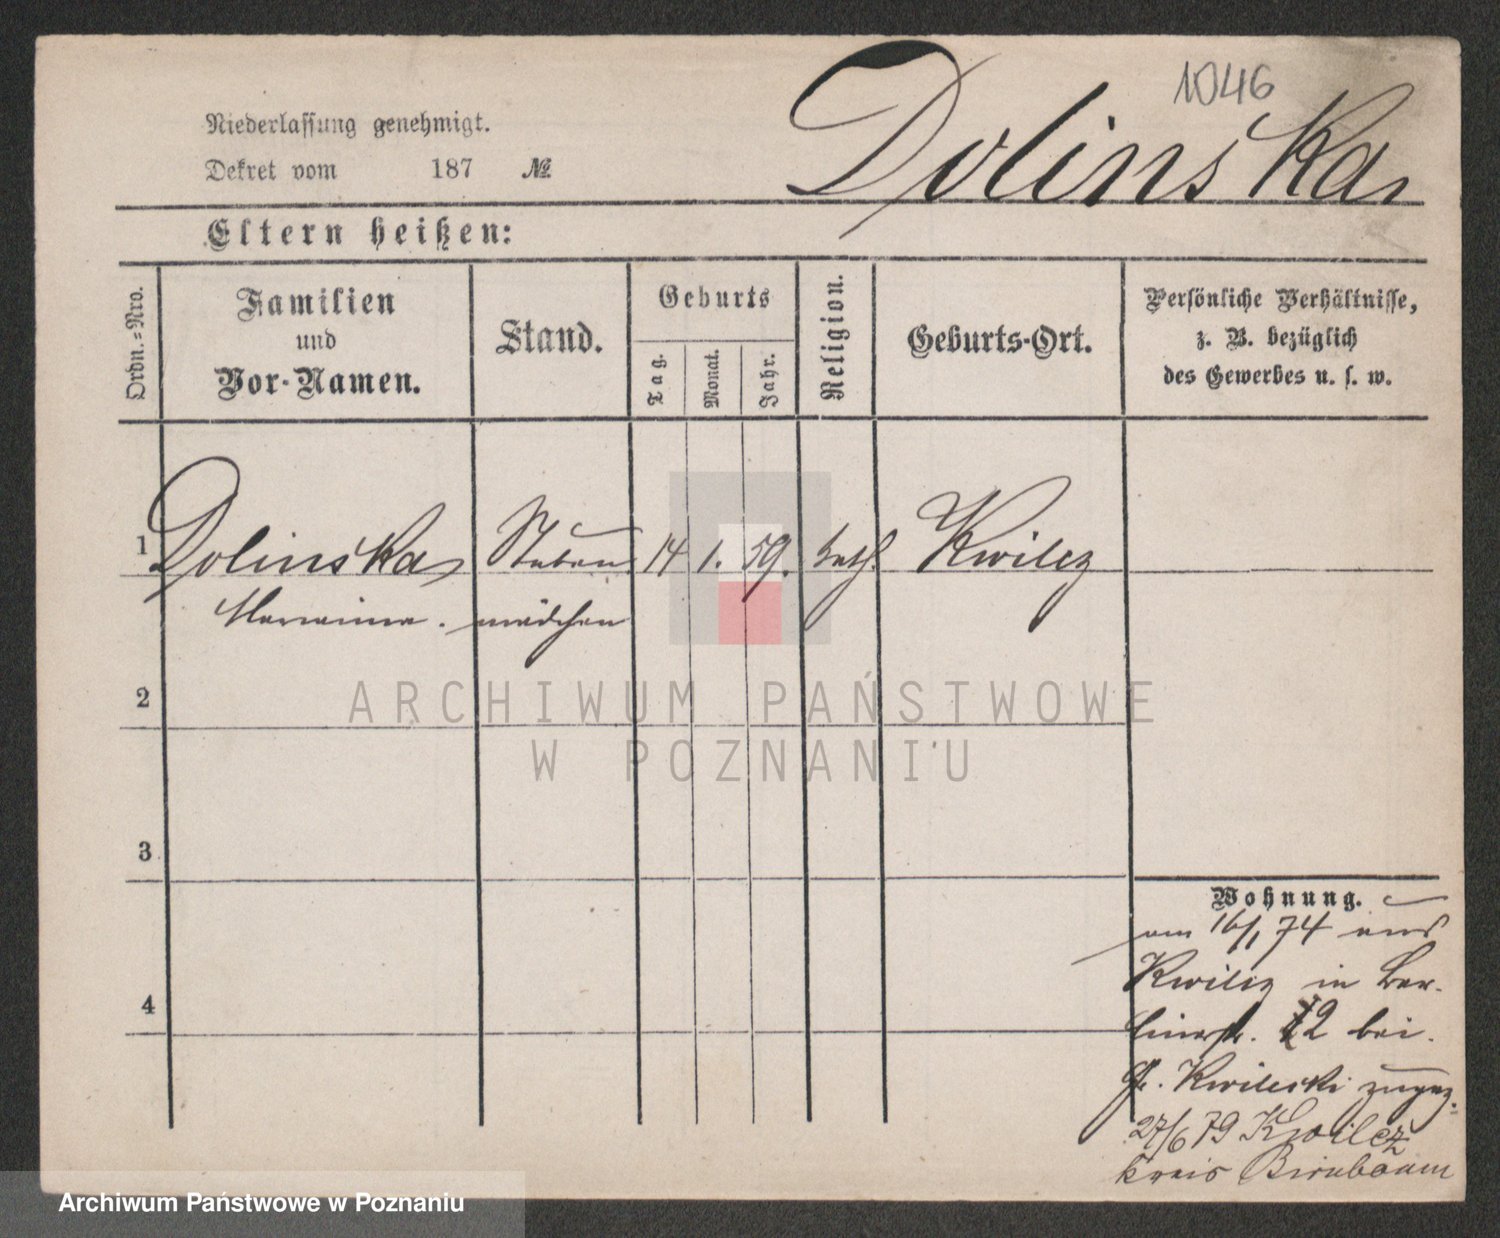 1046
Dolinska
Niederlassung genehmigt.
Dekret vom 187 №
Eltern heißen:
Ordn.-Nro.
Familien
und
Vor-Namen.
Stand.
Geburts
Tag.
Monat.
Jahr.
Religion.
Geburts-Ort.
Persönliche Verhältnisse,
z. B. bezüglich
des Gewerbes u. s. w.
1 Dolinska Stuben 14 1. 59. kath. Kwilcz
Marianna. mädchen
2
3
4
ARCHIWUM PAŃSTWOWE
W POZNANIU
Wohnung.
am 16/1 74 aus
Kwilcz in Ber-
linerstr. 12 bei
Gr. Kwilecki zugez.
27/6 79 Kwilcz
Kreis Birnbaum
Archiwum Państwowe w Poznaniu